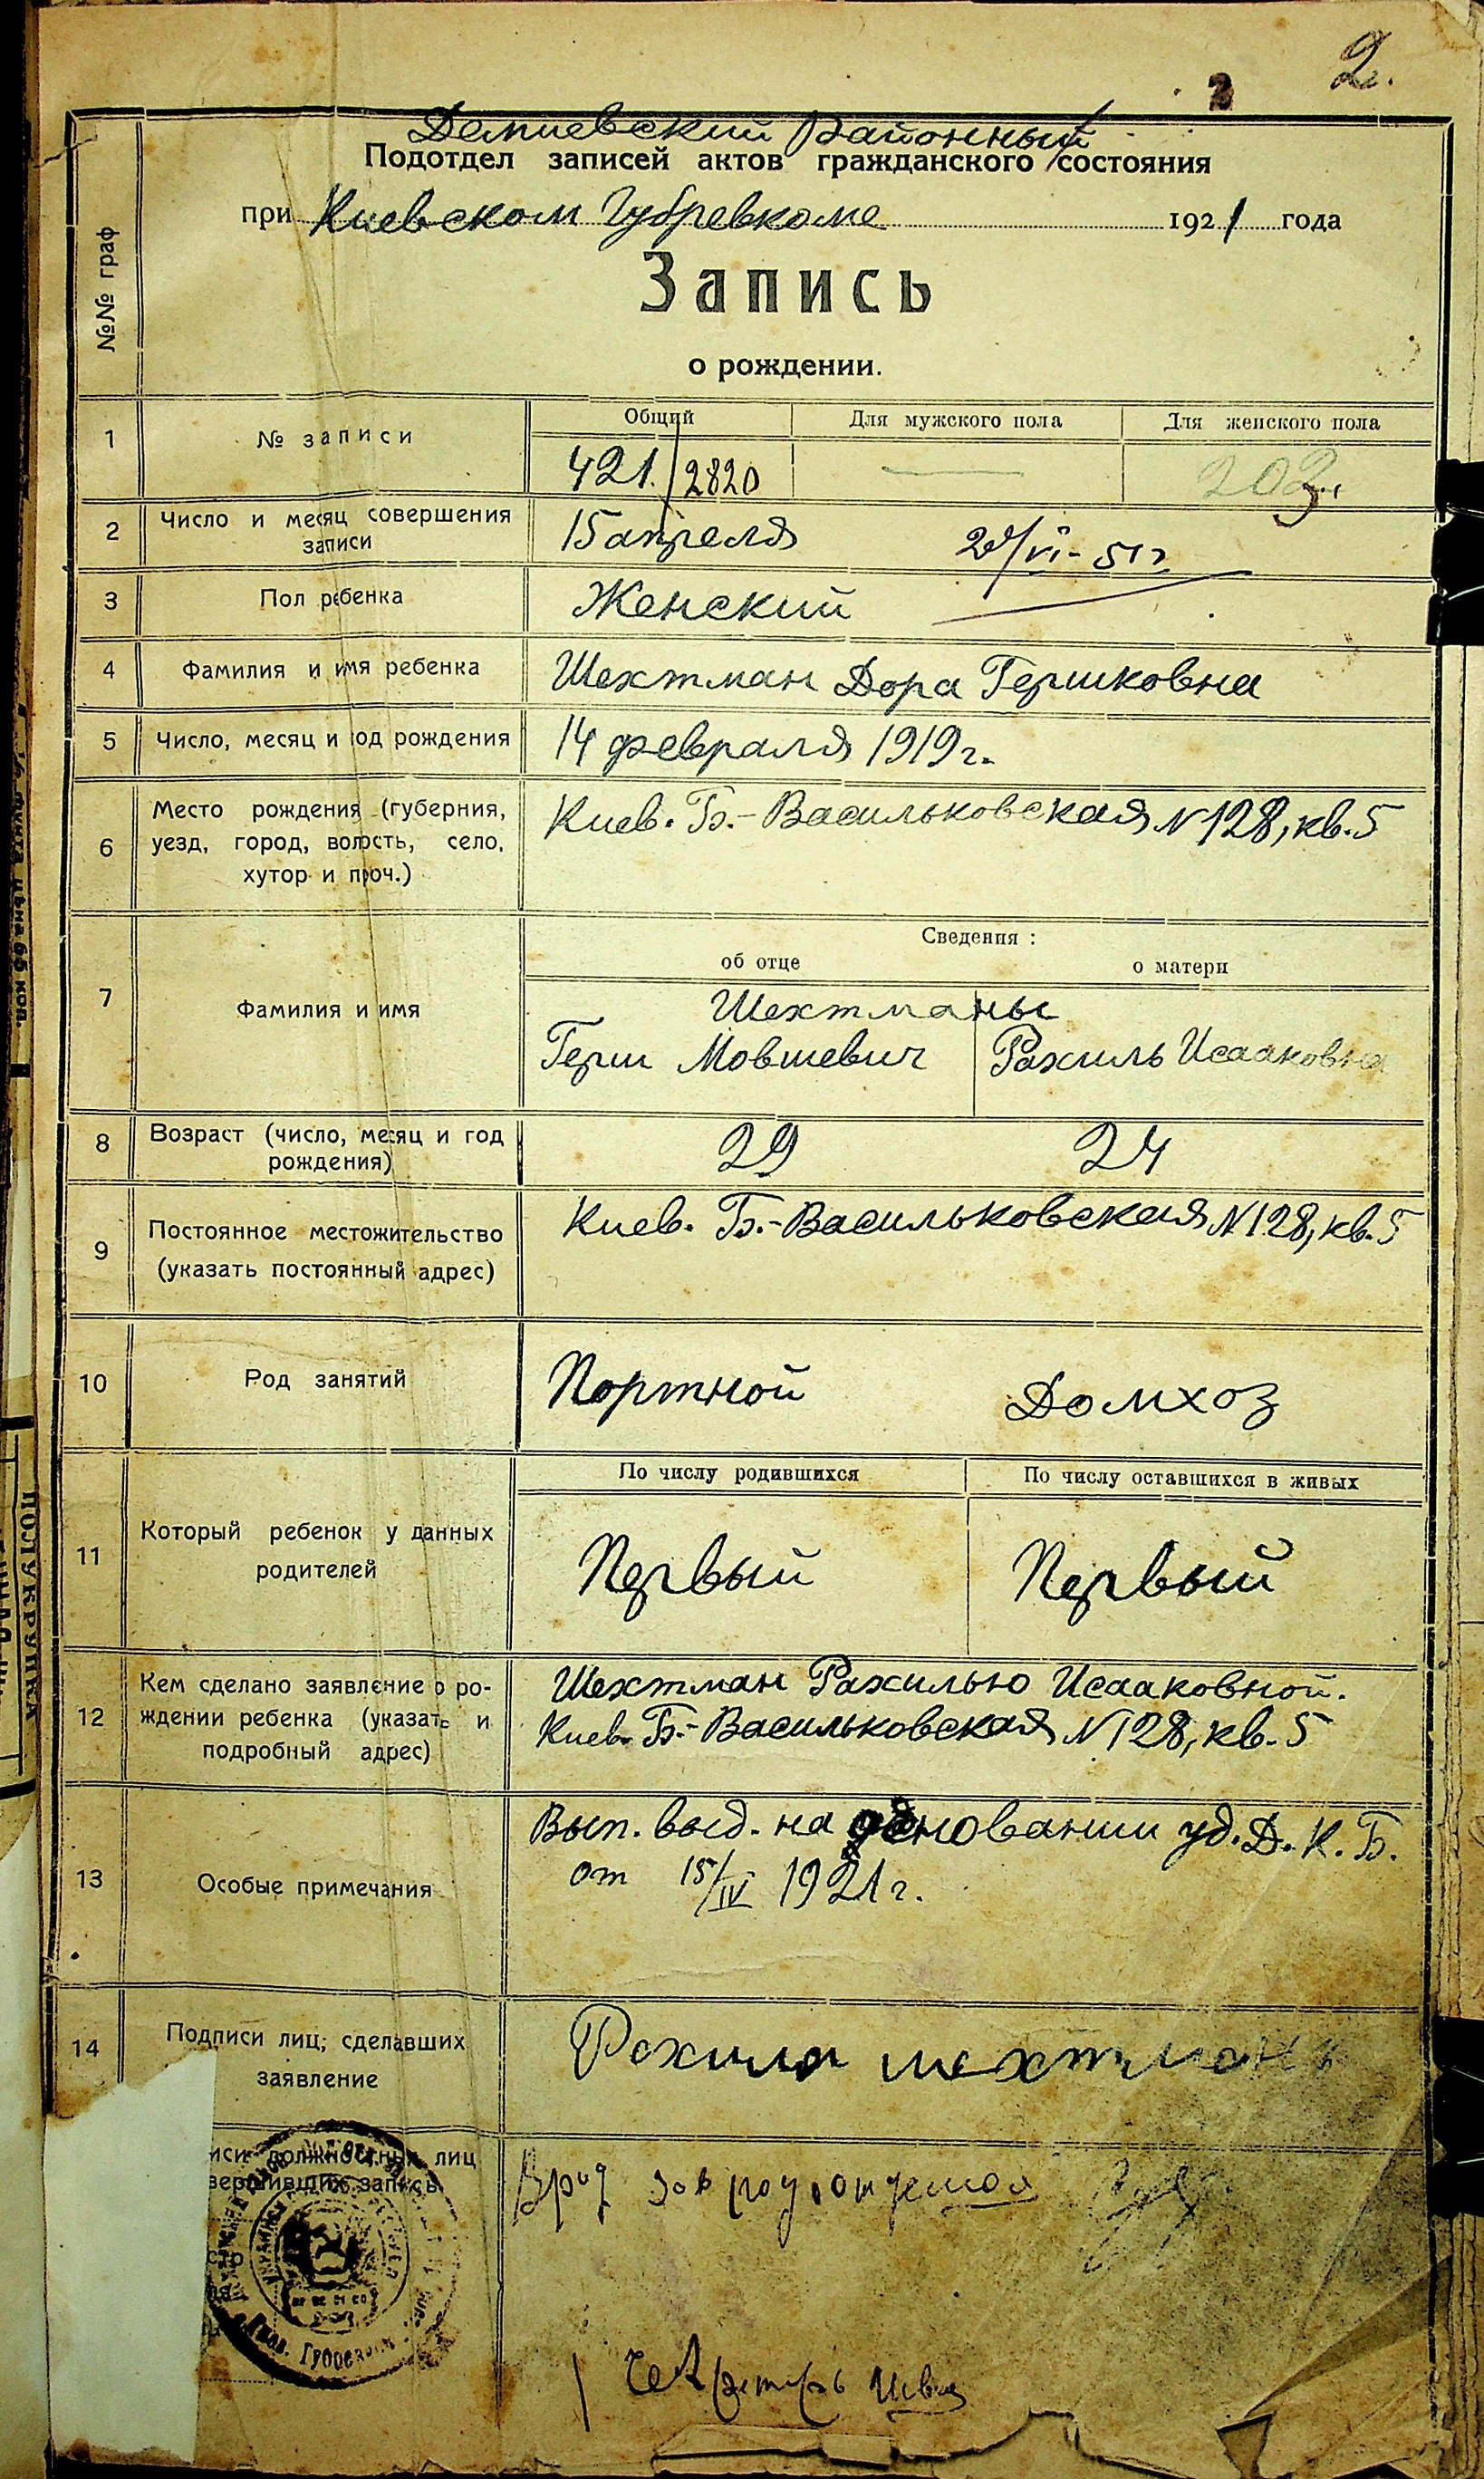 2.
2
Демиевский Районный
Подотдел записей актов гражданского состояния
при Киевском Губревкоме 1921 года
№№ граф
Запись
о рождении.
1 № записи
Общий Для мужского пола Для женского пола
421./2820 — 203
2 Число и месяц совершения записи
15 апреля 20/VI-51г
3 Пол ребенка Женский
4 Фамилия и имя ребенка Шехтман Дора Гершковна
5 Число, месяц и год рождения 14 февраля 1919 г.
6 Место рождения (губерния,
уезд, город, волость, село,
хутор и проч.)
Киев. Б.-Васильковская N128, кв. 5
Сведения:
об отце о матери
7 Фамилия и имя
Шехтманы
Герш Мовшевич Рахиль Исааковна
8 Возраст (число, месяц и год
рождения)
29 24
9 Постоянное местожительство
(указать постоянный адрес)
Киев. Б.-Васильковская N128, кв. 5
10 Род занятий Портной Домхоз
По числу родившихся По числу оставшихся в живых
11 Который ребенок у данных
родителей
Первый Первый
12 Кем сделано заявление о ро-
ждении ребенка (указать и
подробный адрес)
Шехтман Рахилью Исааковной.
Киев. Б.-Васильковская N128, кв. 5
13 Особые примечания
Вып. выд. на основании уд. Д. К. Б.
от 15/IV 1921 г.
14 Подписи лиц, сделавших
заявление
Рохиля шехтман
иси должностных лиц
вершивших запись
Врид зав
Секретарь
ПОЛУКРУПКА